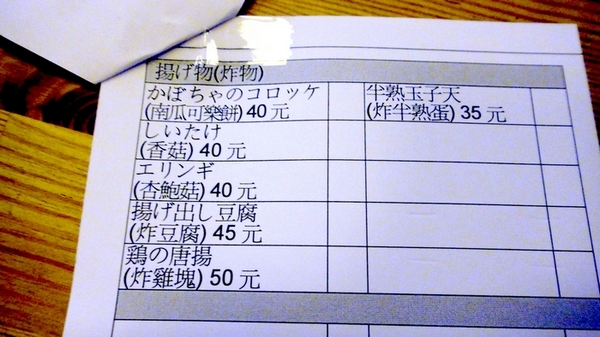 揚げ物(炸物)
かぼちゃのコロッケ
(南瓜可樂餅) 40 元
しいたけ
(香菇) 40 元
エリンギ
(杏鮑菇) 40 元
揚げ出し豆腐
(炸豆腐) 45 元
鶏の唐揚
(炸雞塊) 50 元
半熟玉子天
(炸半熟蛋) 35 元